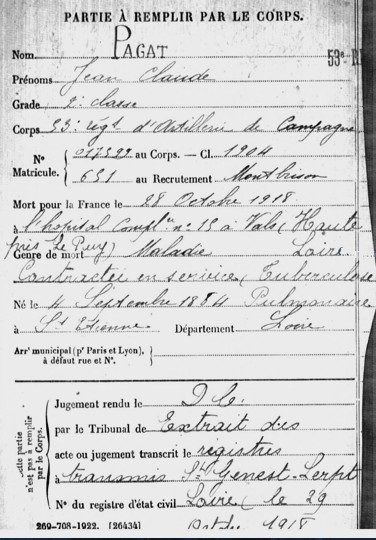 PARTIE À REMPLIR PAR LE CORPS.
Nom PAGAT 53e R
Prénoms Jean Claude
Grade 2e classe
Corps 53e régt d'Artillerie de Campagne
No 017399 au Corps. — Cl. 1904
Matricule. 631 au Recrutement Montbrison
Mort pour la France le 28 Octobre 1918
à l'hôpital Compl. n° 19 à Vals (Haute
près Le Puy) Loire
Genre de mort Maladie
Contractée en service (Tuberculose
Né le 4 Septembre 1884 Pulmonaire
à St Etienne Département Loire
Arrt municipal (pr Paris et Lyon),
à défaut rue et No.
Cette partie
n'est pas à remplir
par le Corps.
Jugement rendu le D C.
par le Tribunal de Extrait des
acte ou jugement transcrit le registres
à transmis St Genest-Lerpt
No du registre d'état civil Loire, le 29
Octobre 1918
269-708-1922. [26434]